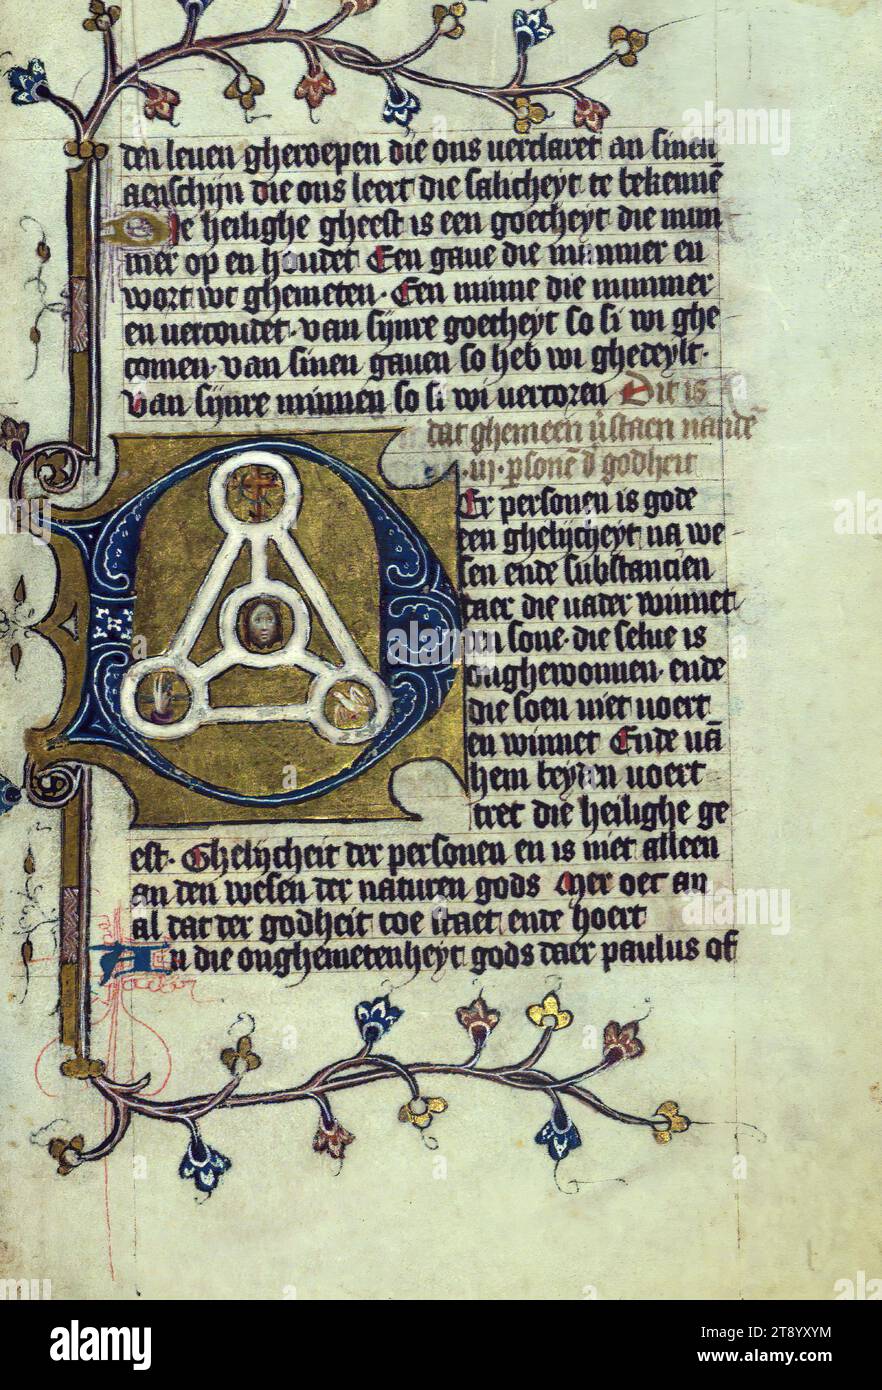 den leuen gheroepen die ons uerclaret an sinen
aenschijn die ons leert die salicheyt te bekennē
Die heilighe gheest is een goetheyt die num
mer op en houdet Een gaue die nummer en
wort wt ghemeten · Een minne die nummer
en uercoudet · van sijnre goetheyt so si wi ghe
comen · van sinen gauen so heb wi ghedeylt ·
van sijnre minnen so si wi uercoren Dit is
dat ghemeen ūstaen vandē
· iij · psonē d godheit
Der personen is gode
een ghelijcheyt na we
sen ende substancien
daer die uader winnet
een sone · die selue is
onghewonnen · ende
die soen niet uoert
en winnet Ende uā
hem beyden uoert
tret die heilighe ge
est · Ghelijcheit der personen en is niet alleen
an den wesen der naturen gods Mer oec an
al dat der godheit toe staet ende hoert
An die onghemetenheyt gods daer paulus of
alamy
Image ID: 2T8YXYM
www.alamy.com